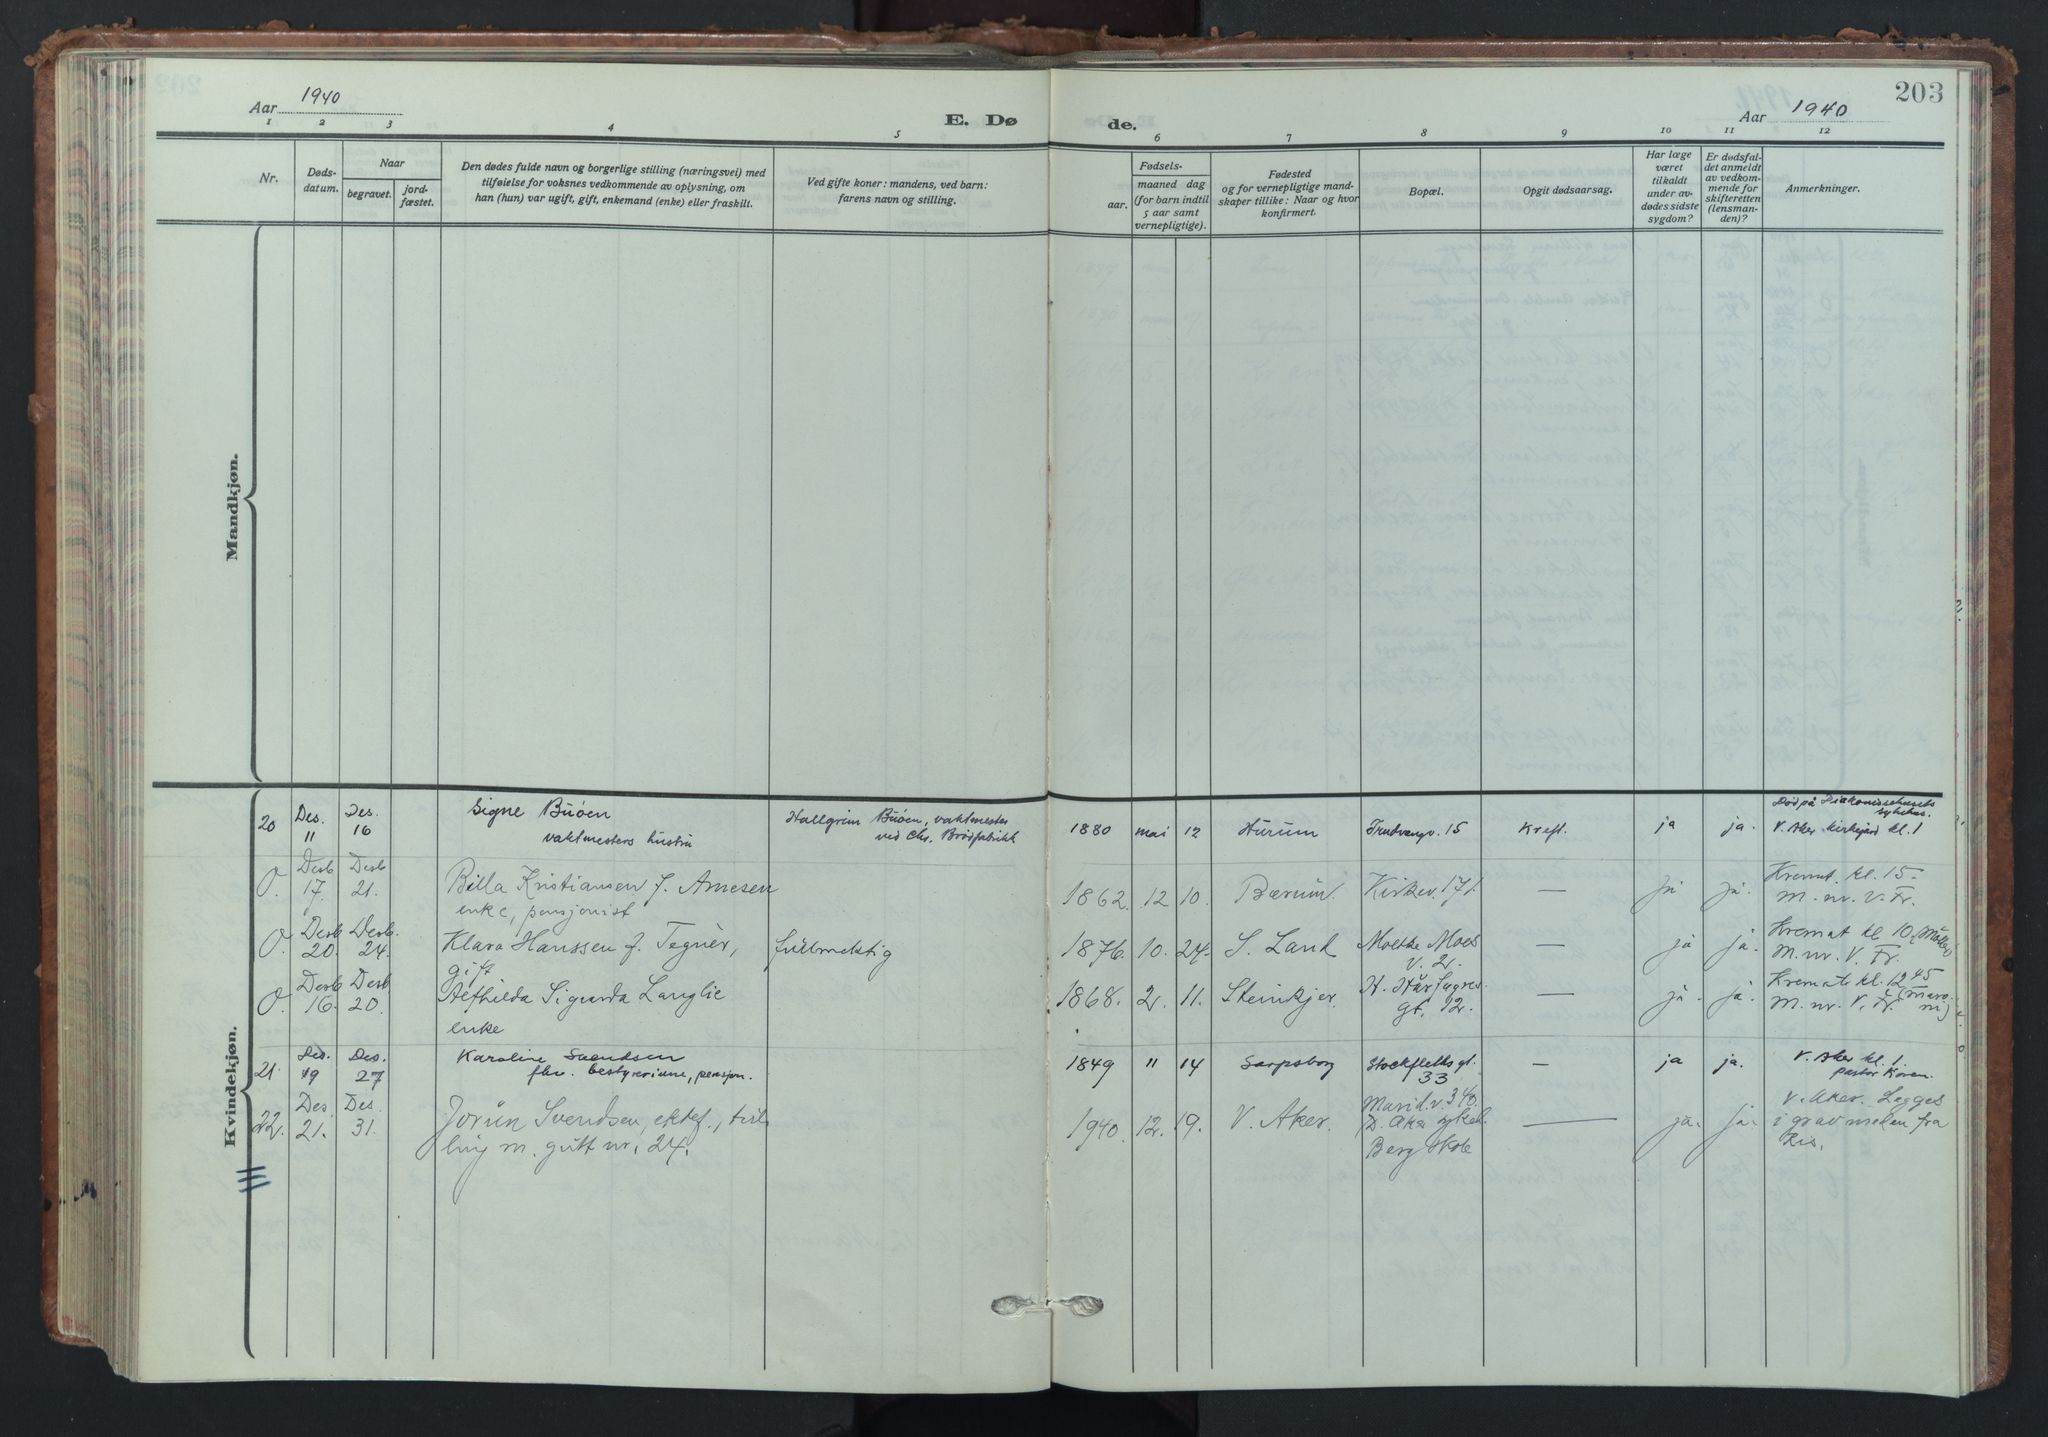 203
Aar 1940
E. Dø
de.
Aar 1940
1 2 3 4 5 6 7 8 9 10 11 12
Nr.
Døds-
datum.
Naar
begravet.
jord-
fæstet.
Den dødes fulde navn og borgerlige stilling (næringsvei) med
tilføielse for voksnes vedkommende av oplysning, om
han (hun) var ugift, gift, enkemand (enke) eller fraskilt.
Ved gifte koner: mandens, ved barn:
farens navn og stilling.
Fødsels-
aar.
maaned dag
(for barn indtil
5 aar samt
vernepligtige).
Fødested
og for vernepligtige mand-
skaper tillike: Naar og hvor
konfirmert.
Bopæl.
Opgit dødsaarsag.
Har læge
været
tilkaldt
under av-
dødes sidste
sygdom?
Er dødsfal-
det anmeldt
av vedkom-
mende for
skifteretten
(lensman-
den)?
Anmerkninger.
Mandkjøn.
Kvindekjøn.
20
Des.
11
Des.
16
Signe Buøen
vaktmesters hustru
Hallgrim Buøen, vaktmester
ved Chr. Brødfabrikk
1880 mai 12 Hurum Trudvangv. 15 Kreft. ja ja.
Død på Diakonissehusets
sykehus.
V. Aker kirkegård kl. 1
O.
Desb
17.
Desb
21.
Billa Kristiansen f. Arnesen
enke, pensjonist
1862. 12 10. Bærum. Kirkev. 171. — ja ja.
Kremat. kl. 15-
M. nr. V. Fr.
O.
Desb
20.
Desb.
24.
Klara Hanssen f. Tegnèr,
gift
fullmektig
1876. 10. 24. S. Land Moltke Moes
v. 2. — ja ja.
Kremat kl 10
M. nr. V. Fr.
O.
Desb
16.
Desb
20.
Sigurda Langlie
enke
1868. 2. 11. Steinkjer. H. Hårfagres
gt. 12. — ja. ja.
Kremat. kl. 12 45
M. nr. V. Fr.
21.
Des.
19
Des.
27
Karoline Svendsen
fhv. bestyrerinne, pensjon.
1849 11 14 Sarpsborg Stockfleths gt.
33 — ja ja.
V. Aker kl. 1.
pastor Koren.
22.
Des.
21.
Des.
31.
Jorun Svendsen, ektef., tvil
ling m. gutt nr. 24.
1940. 12. 19. V. Aker. Marid. v. 340.
D. Aker sykeh.
Berg skole — ja. ja.
V. Aker. Legges
i grav meden fra
Ris.